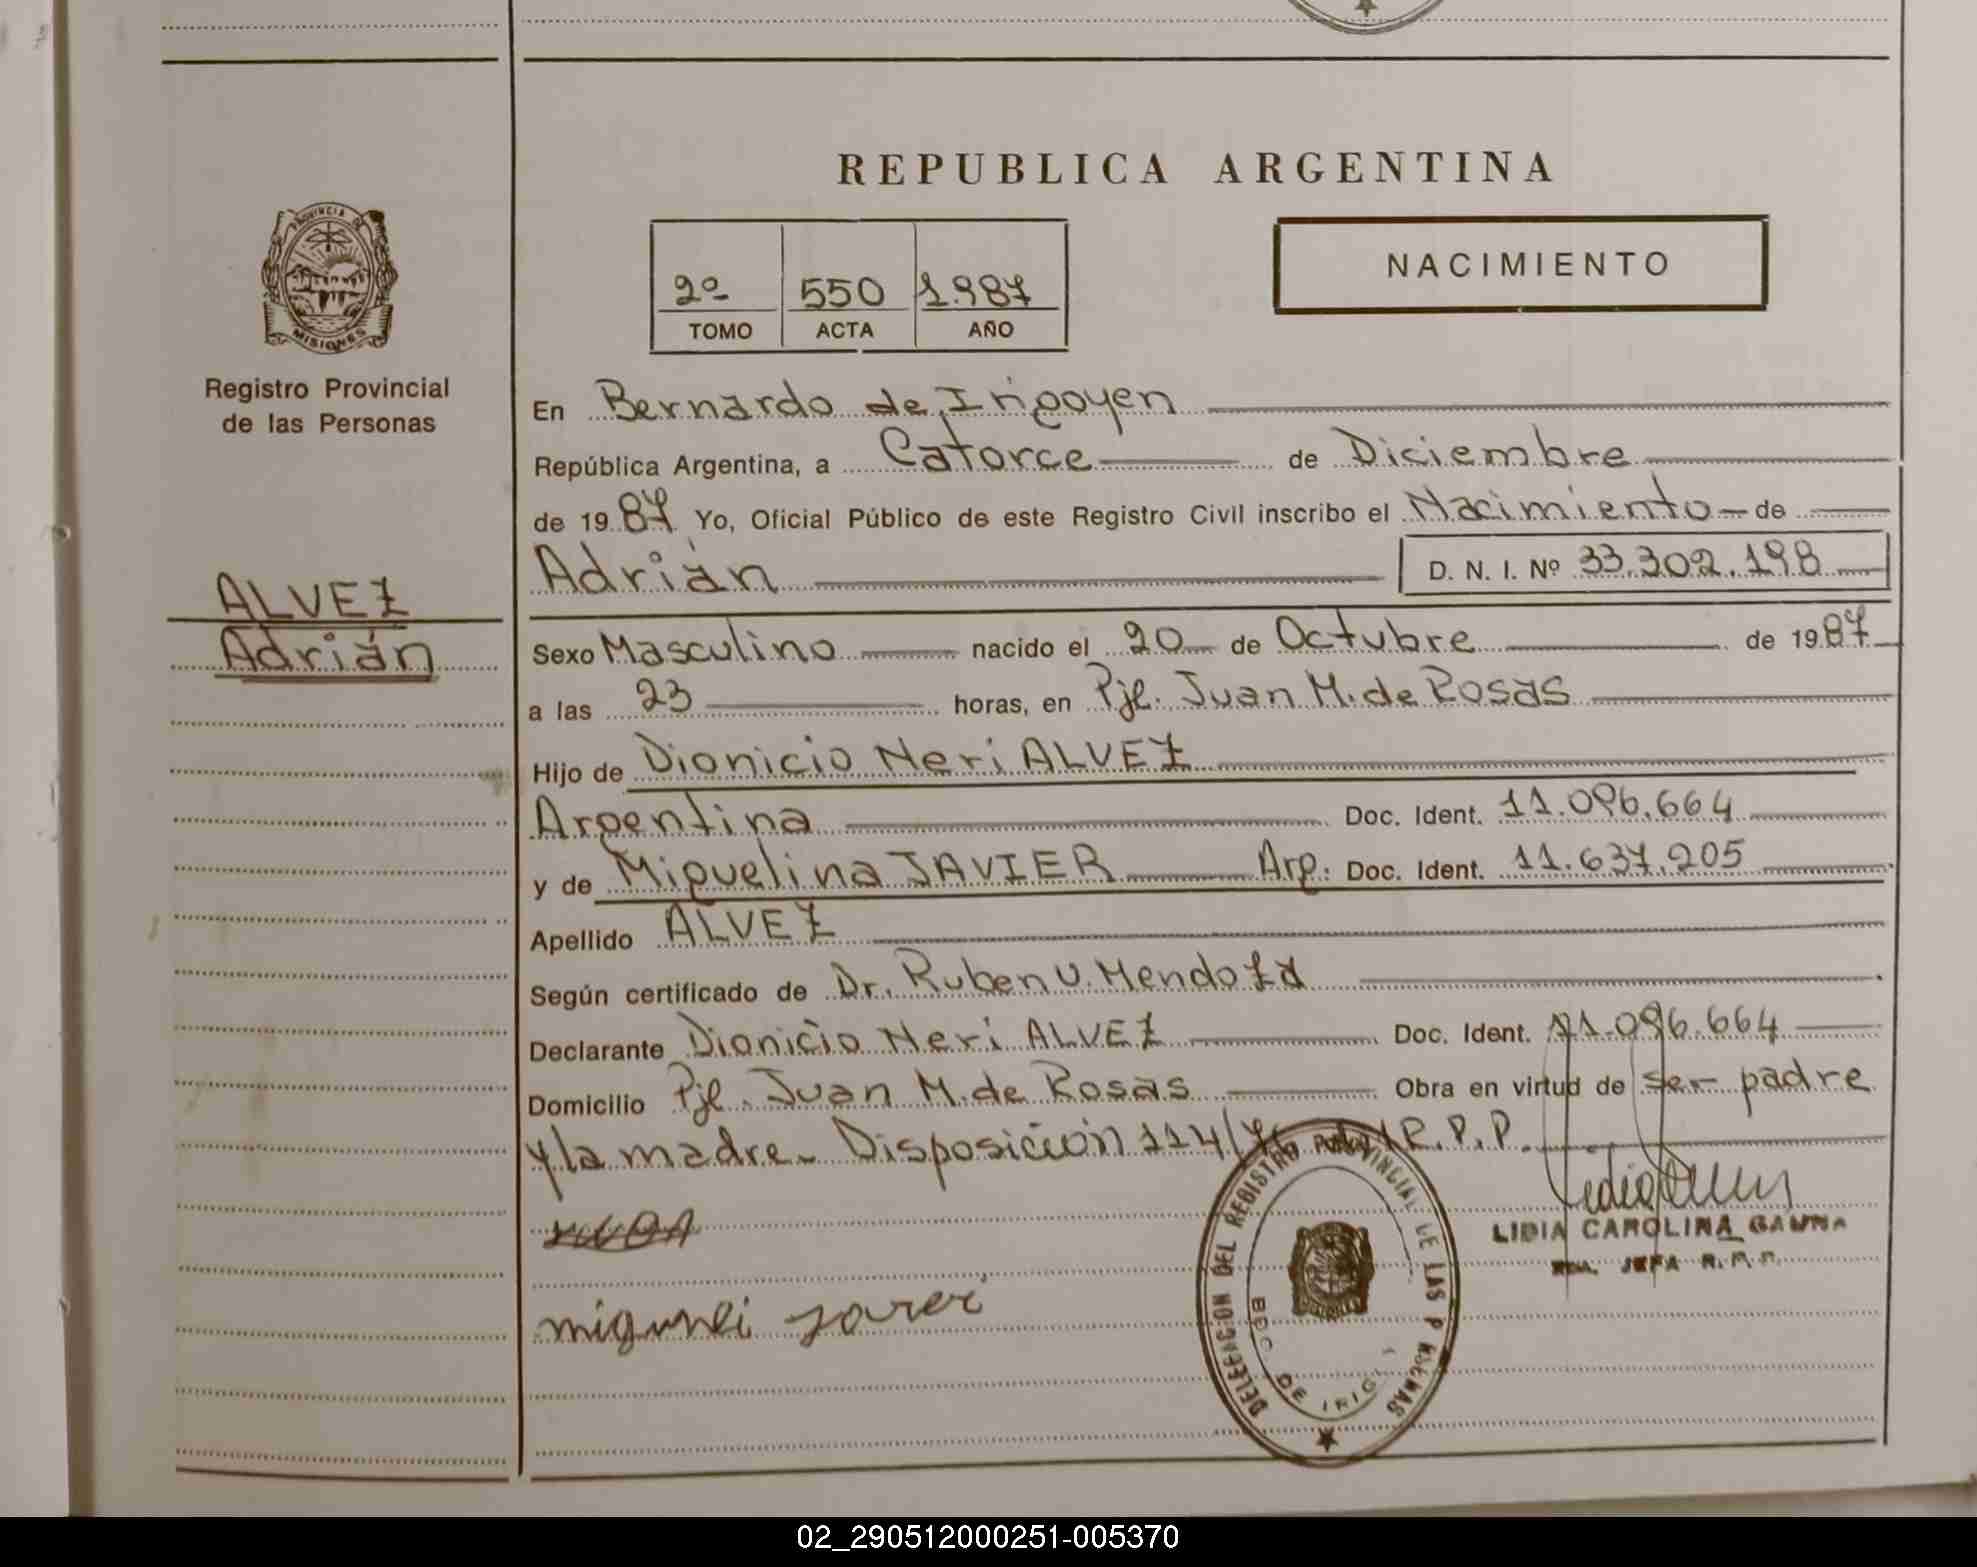 REPUBLICA ARGENTINA
PROVINCIA DE
MISIONES
Registro Provincial
de las Personas
2º 550 1.987
TOMO ACTA AÑO
NACIMIENTO
En Bernardo de Irigoyen
República Argentina, a Catorce de Diciembre
de 1987 Yo, Oficial Público de este Registro Civil inscribo el Nacimiento de
Adrián D. N. I. Nº 33.302.198
ALVEZ
Adrián
Sexo Masculino nacido el 20 de Octubre de 1987
a las 23 horas, en Pje. Juan M. de Rosas
Hijo de Dionicio Neri ALVEZ
Argentina Doc. Ident. 11.096.664
y de Miguelina JAVIER Arg: Doc. Ident. 11.637.205
Apellido ALVEZ
Según certificado de Dr. Ruben U. Mendoza
Declarante Dionicio Neri ALVEZ Doc. Ident. 11.096.664
Domicilio Pje. Juan M. de Rosas Obra en virtud de ser padre
y la madre. Disposición 114/ R.P.P.
DELEGACION DEL REGISTRO PROVINCIAL DE LAS PERSONAS
BDO DE IRIG
LIDIA CAROLINA GAUNA
JEFA R.P.P.
02_290512000251-005370